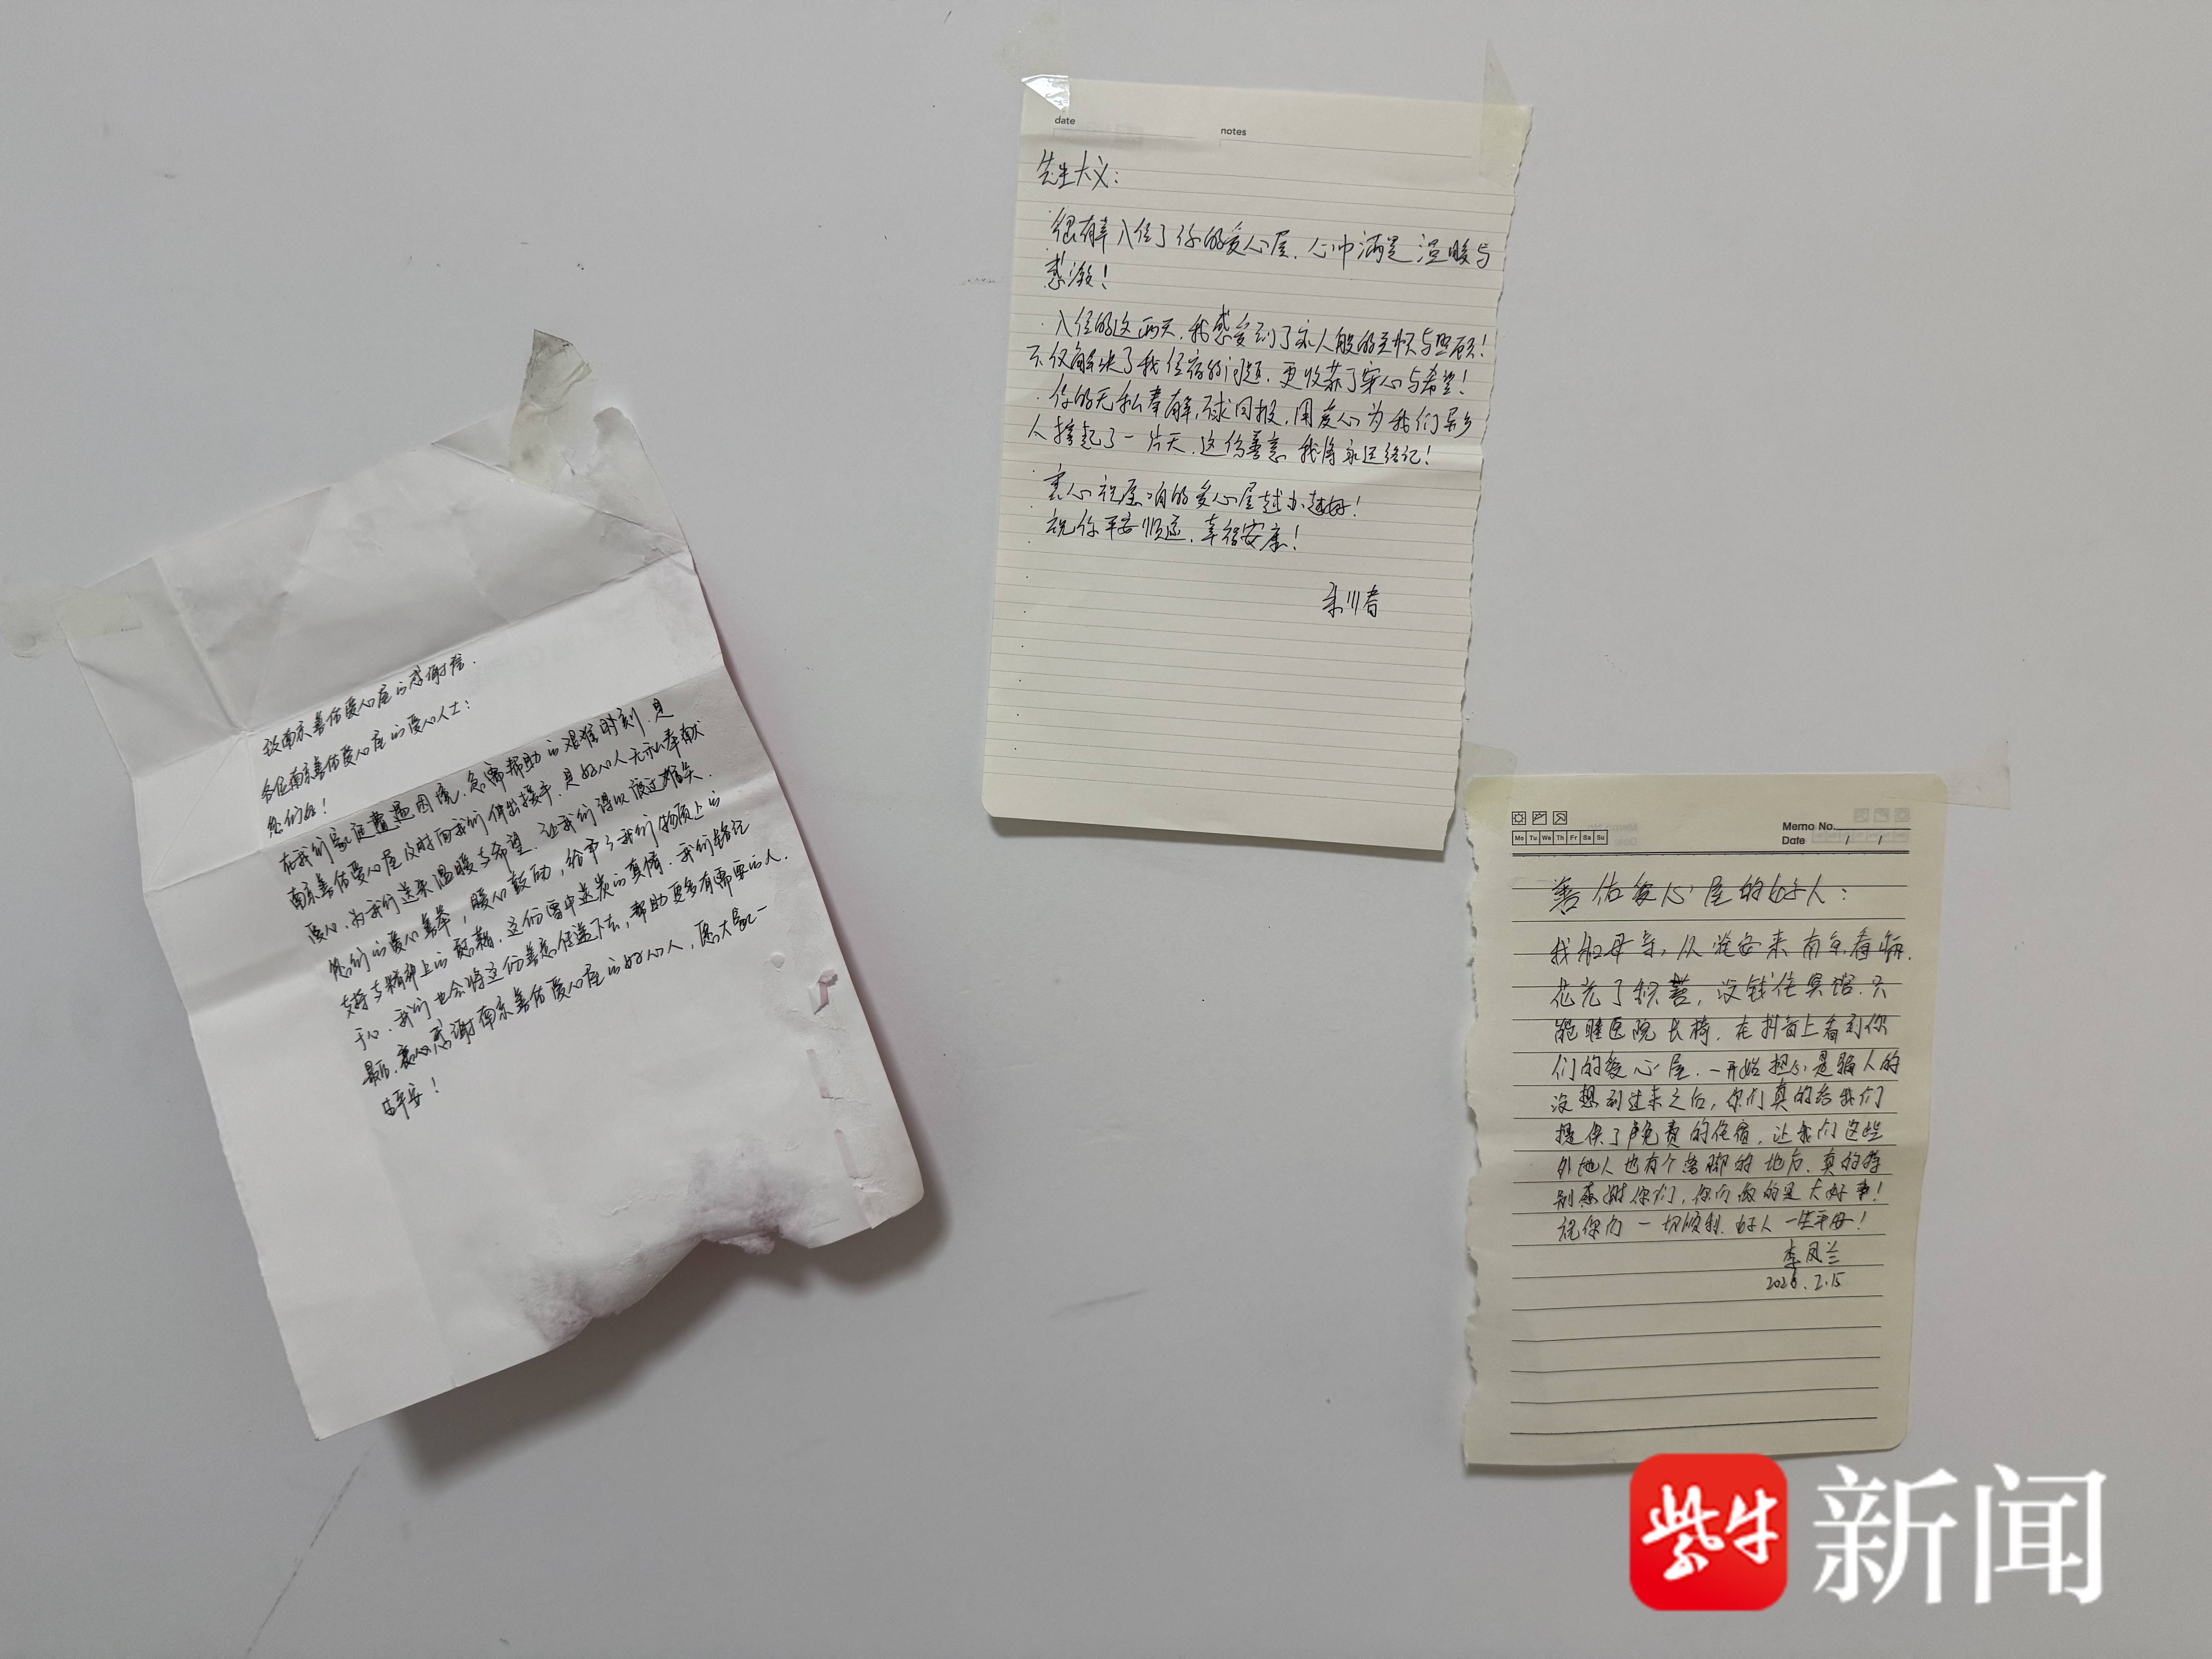 致南京善佑爱心屋的感谢信.
各位南京善佑爱心屋的爱心人士:
您们好!
在我们家庭遭遇困境、急需帮助的艰难时刻.是
南京善佑爱心屋及时向我们伸出援手,是好心人无私奉献
爱心,为我们送来温暖与希望.让我们得以渡过难关.
您们的爱心善举,暖心鼓励,给予了我们物质上的
支持与精神上的慰藉.这份雪中送炭的真情.我们铭记
于心.我们也会将这份善意传递下去,帮助更多有需要的人.
最后.衷心感谢南京善佑爱心屋的好心人,愿大家一
生平安!
date
notes
先生大义:
很有幸入住了你的爱心屋.心中满是温暖与
感激!
入住的这两天.我感受到了家人般的关怀与照顾!
不仅解决了我住宿的问题.更收获了安心与希望!
你的无私奉献,不求回报,用爱心为我们异乡
人撑起了一片天.这份善意我将永远铭记!
衷心祝愿咱的爱心屋越办越好!
祝你平安顺遂.幸福安康!
Mo Tu We Th Fr Sa Su
Memo No.
Date / /
善佑爱心屋的好人:
我和母亲,从淮安来南京看病.
花光了积蓄,没钱住宾馆.只
能睡医院长椅.在抖音上看到你
们的爱心屋.一开始担心是骗人的
没想到过来之后,你们真的给我们
提供了免费的住宿,让我们这些
外地人也有个落脚的地方.真的特
别感谢你们,你们做的是大好事!
祝你们一切顺利.好人一生平安!
李凤兰
2026.2.15
紫牛
新闻